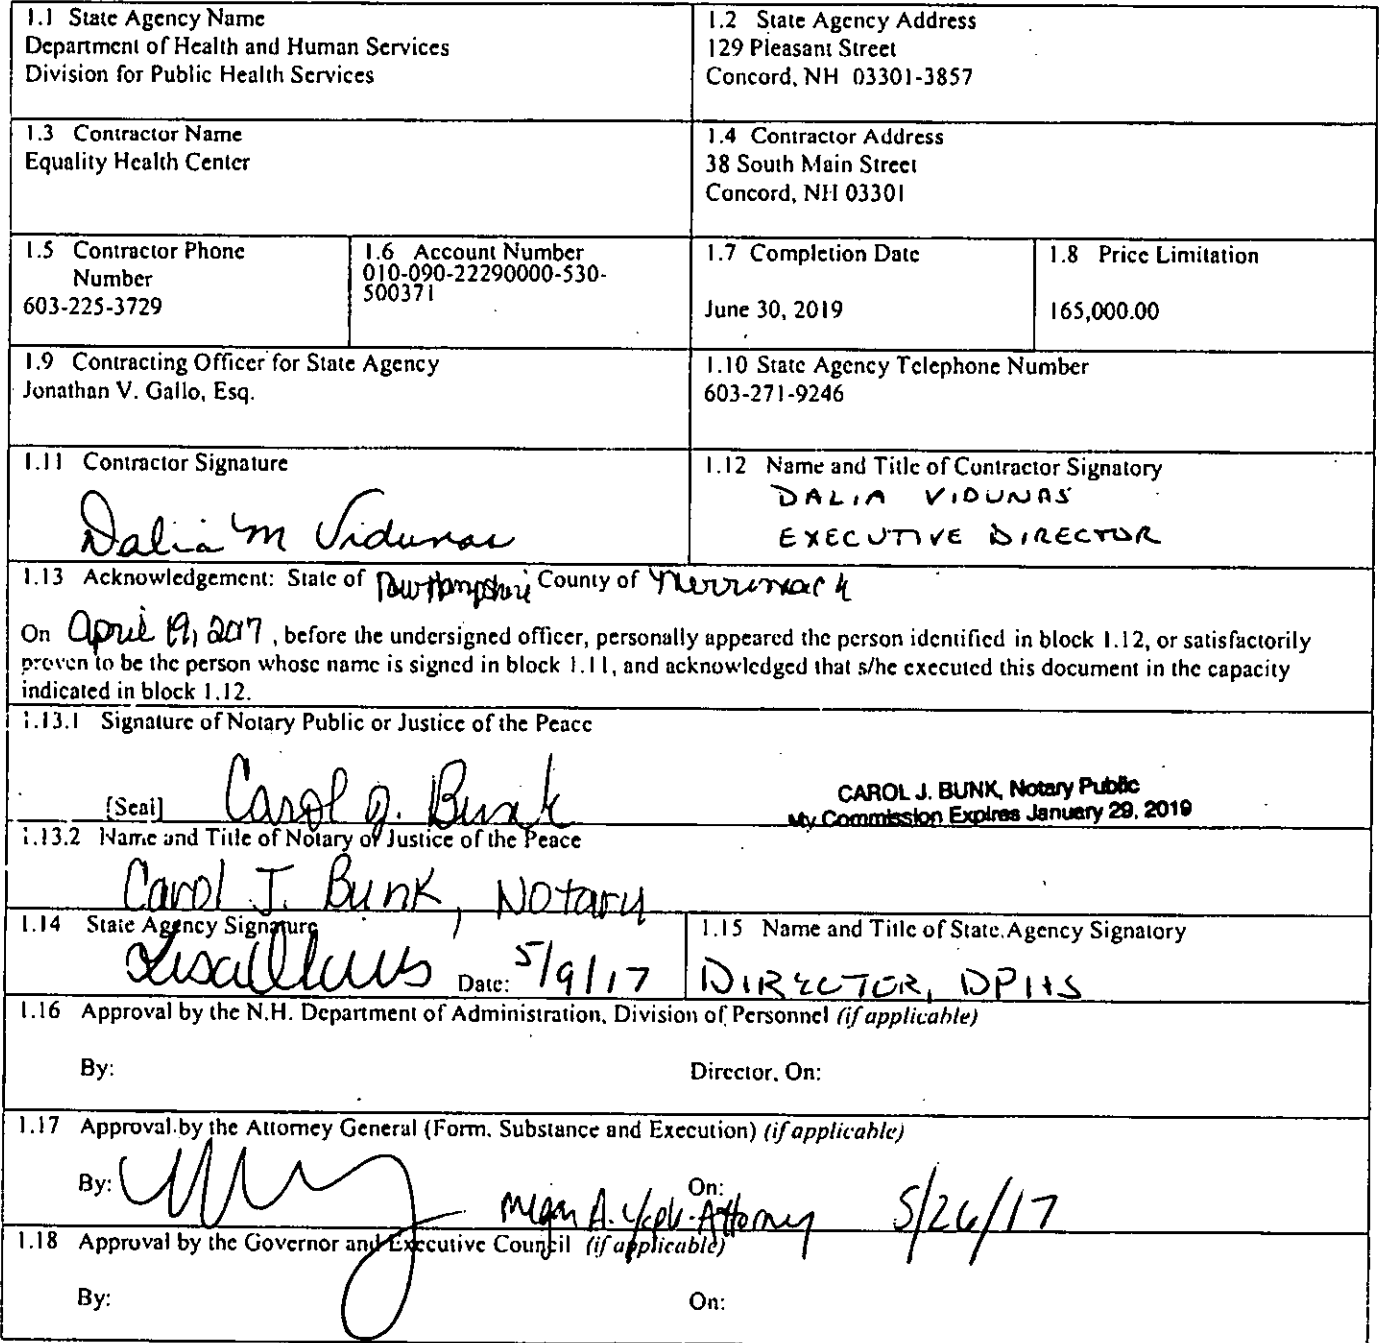 1.1 State Agency Name
Department of Health and Human Services
Division for Public Health Services
1.2 State Agency Address
129 Pleasant Street
Concord, NH 03301-3857
1.3 Contractor Name
Equality Health Center
1.4 Contractor Address
38 South Main Street
Concord, NH 03301
1.5 Contractor Phone
Number
603-225-3729
1.6 Account Number
010-090-22290000-530-
500371
1.7 Completion Date
June 30, 2019
1.8 Price Limitation
165,000.00
1.9 Contracting Officer for State Agency
Jonathan V. Gallo, Esq.
1.10 State Agency Telephone Number
603-271-9246
1.11 Contractor Signature
Dalia M Vidunas
1.12 Name and Title of Contractor Signatory
DALIA VIDUNAS
EXECUTIVE DIRECTOR
1.13 Acknowledgement: State of New Hampshire County of Merrimack
On April 19, 2017, before the undersigned officer, personally appeared the person identified in block 1.12, or satisfactorily
proven to be the person whose name is signed in block 1.11, and acknowledged that s/he executed this document in the capacity
indicated in block 1.12.
1.13.1 Signature of Notary Public or Justice of the Peace
[Seal] Carol J. Bunk
CAROL J. BUNK, Notary Public
My Commission Expires January 29, 2019
1.13.2 Name and Title of Notary or Justice of the Peace
Carol J. Bunk, Notary
1.14 State Agency Signature
Date: 5/9/17
1.15 Name and Title of State Agency Signatory
DIRECTOR, DPHS
1.16 Approval by the N.H. Department of Administration, Division of Personnel (if applicable)
By: Director, On:
1.17 Approval by the Attorney General (Form, Substance and Execution) (if applicable)
By: On:
Megan A. Attorney 5/26/17
1.18 Approval by the Governor and Executive Council (if applicable)
By: On: